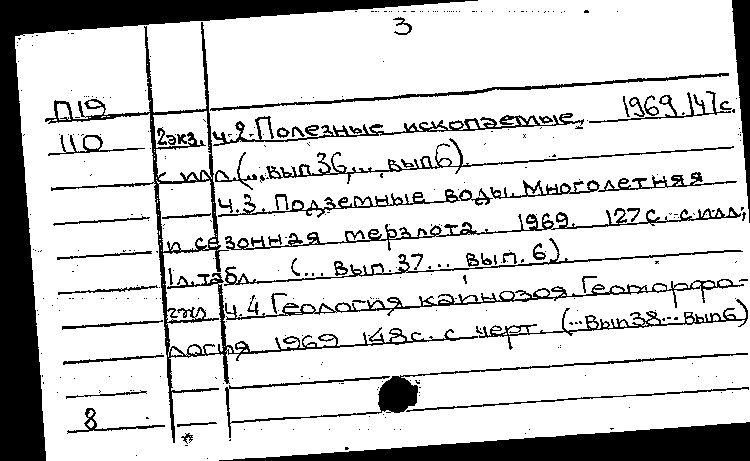 3
П19
110
2экз. ч.2. Полезные ископаемые. 1969. 147с.
с илл. (... вып. 36, ..., вып. 6).
ч.3. Подземные воды. Многолетняя
и сезонная мерзлота. 1969. 127с. с илл;
1л. табл. (... вып. 37... вып. 6).
2экз ч.4. Геология кайнозоя. Геоморфо-
логия 1969 148с. с черт. (... вып 38... вып 6)
8